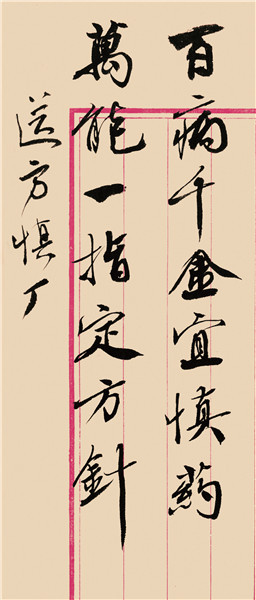 百病千金宜慎药
萬能一指定方針
送方慎厂